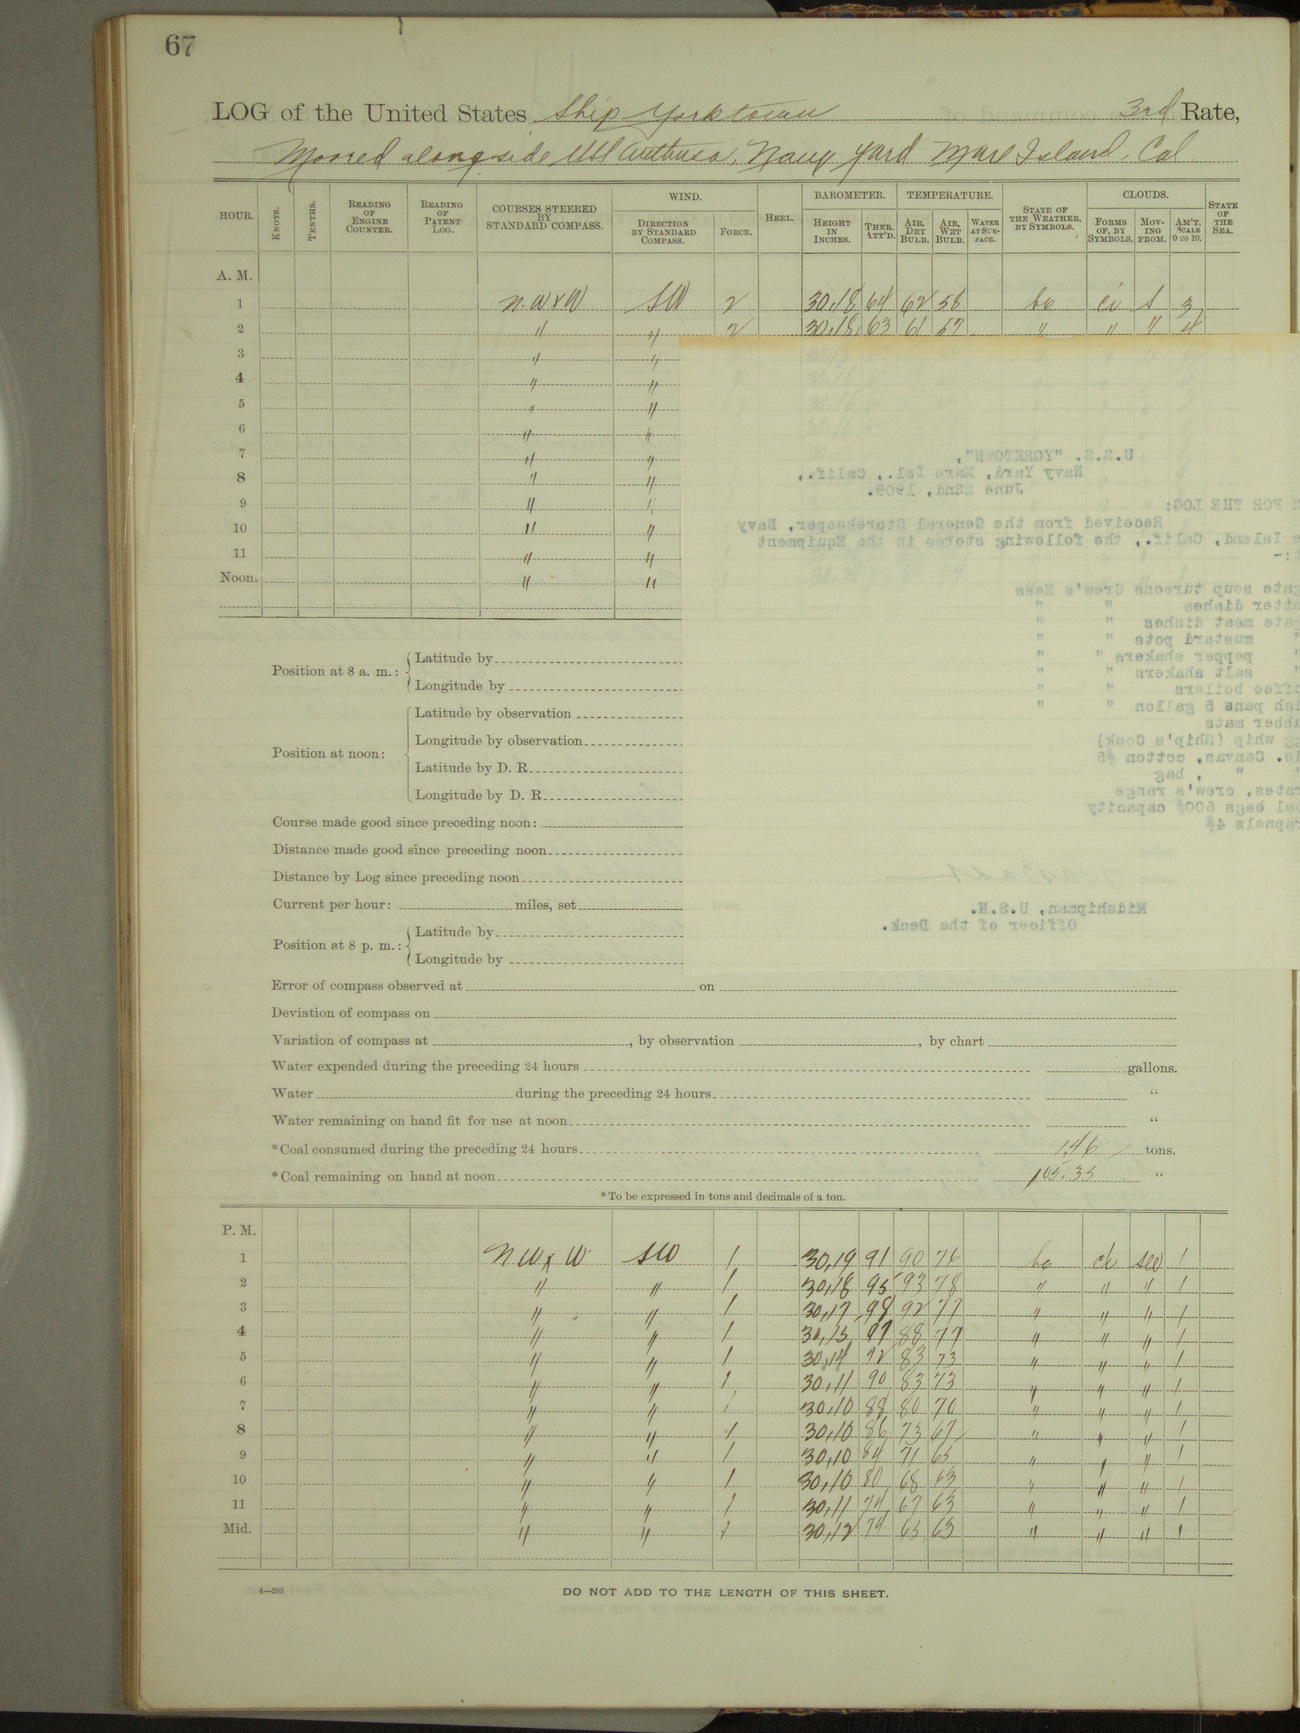 67
LOG of the United States Ship Yorktown 3rd Rate,
Moored alongside USS Arethusa, Navy Yard Mare Island, Cal
HOUR. KNOTS. TENTHS. READING OF ENGINE COUNTER. READING OF PATENT LOG. COURSES STEERED BY STANDARD COMPASS. WIND. DIRECTION BY STANDARD COMPASS. FORCE. HEEL. BAROMETER. HEIGHT IN INCHES. THER. ATT'D. TEMPERATURE. AIR, DRY BULB. AIR, WET BULB. WATER AT SURFACE. STATE OF THE WEATHER, BY SYMBOLS. CLOUDS. FORMS OF, BY SYMBOLS. MOVING FROM. AM'T. SCALE 0 TO 10. STATE OF THE SEA.
A. M.
1 N.W x W SW 2 30.18 64 62 58 bc ci S 3
2 " " 2 30.18 63 61 57 " " " 4
3 " "
4 " "
5 " "
6 " "
7 " "
8 " "
9 " "
10 " "
11 " "
Noon. " "
U.S.S. "YORKTOWN",
Navy Yard, Mare Isl., Calif.,
June 22nd, 1909.
FOR THE LOG:
Received from the General Storekeeper, Navy
Island, Calif., the following stores in the Equipment
soup tureens Crew's Mess
dishes " "
meat dishes " "
" mustard pots " "
" pepper shakers " "
" salt shakers " "
boilers " "
pans 5 gallon " "
mats
whip (Ship's Cook)
Canvas, cotton
" " , bag
crew's range
bags 600# capacity
Midshipman, U.S.N.
Officer of the Deck.
Position at 8 a. m.: Latitude by
Longitude by
Position at noon: Latitude by observation
Longitude by observation
Latitude by D. R.
Longitude by D. R.
Course made good since preceding noon:
Distance made good since preceding noon
Distance by Log since preceding noon
Current per hour: miles, set
Position at 8 p. m.: Latitude by
Longitude by
Error of compass observed at on
Deviation of compass on
Variation of compass at , by observation , by chart
Water expended during the preceding 24 hours gallons.
Water during the preceding 24 hours "
Water remaining on hand fit for use at noon "
*Coal consumed during the preceding 24 hours 1.46 tons.
*Coal remaining on hand at noon 105.35 "
*To be expressed in tons and decimals of a ton.
P. M.
1 NW x W SW 1 30.19 91 90 76 bc ci SW 1
2 " " 1 30.18 95 93 78 " " " 1
3 " " 1 30.17 98 92 77 " " " 1
4 " " 1 30.15 97 88 77 " " " 1
5 " " 1 30.14 92 83 73 " " " 1
6 " " 1 30.11 90 83 73 " " " 1
7 " " 1 30.10 88 80 70 " " " 1
8 " " 1 30.10 86 73 67 " " " 1
9 " " 1 30.10 84 71 65 " " " 1
10 " " 1 30.10 80 68 63 " " " 1
11 " " 1 30.11 74 67 63 " " " 1
Mid. " " 1 30.12 74 65 63 " " " 1
4—265
DO NOT ADD TO THE LENGTH OF THIS SHEET.